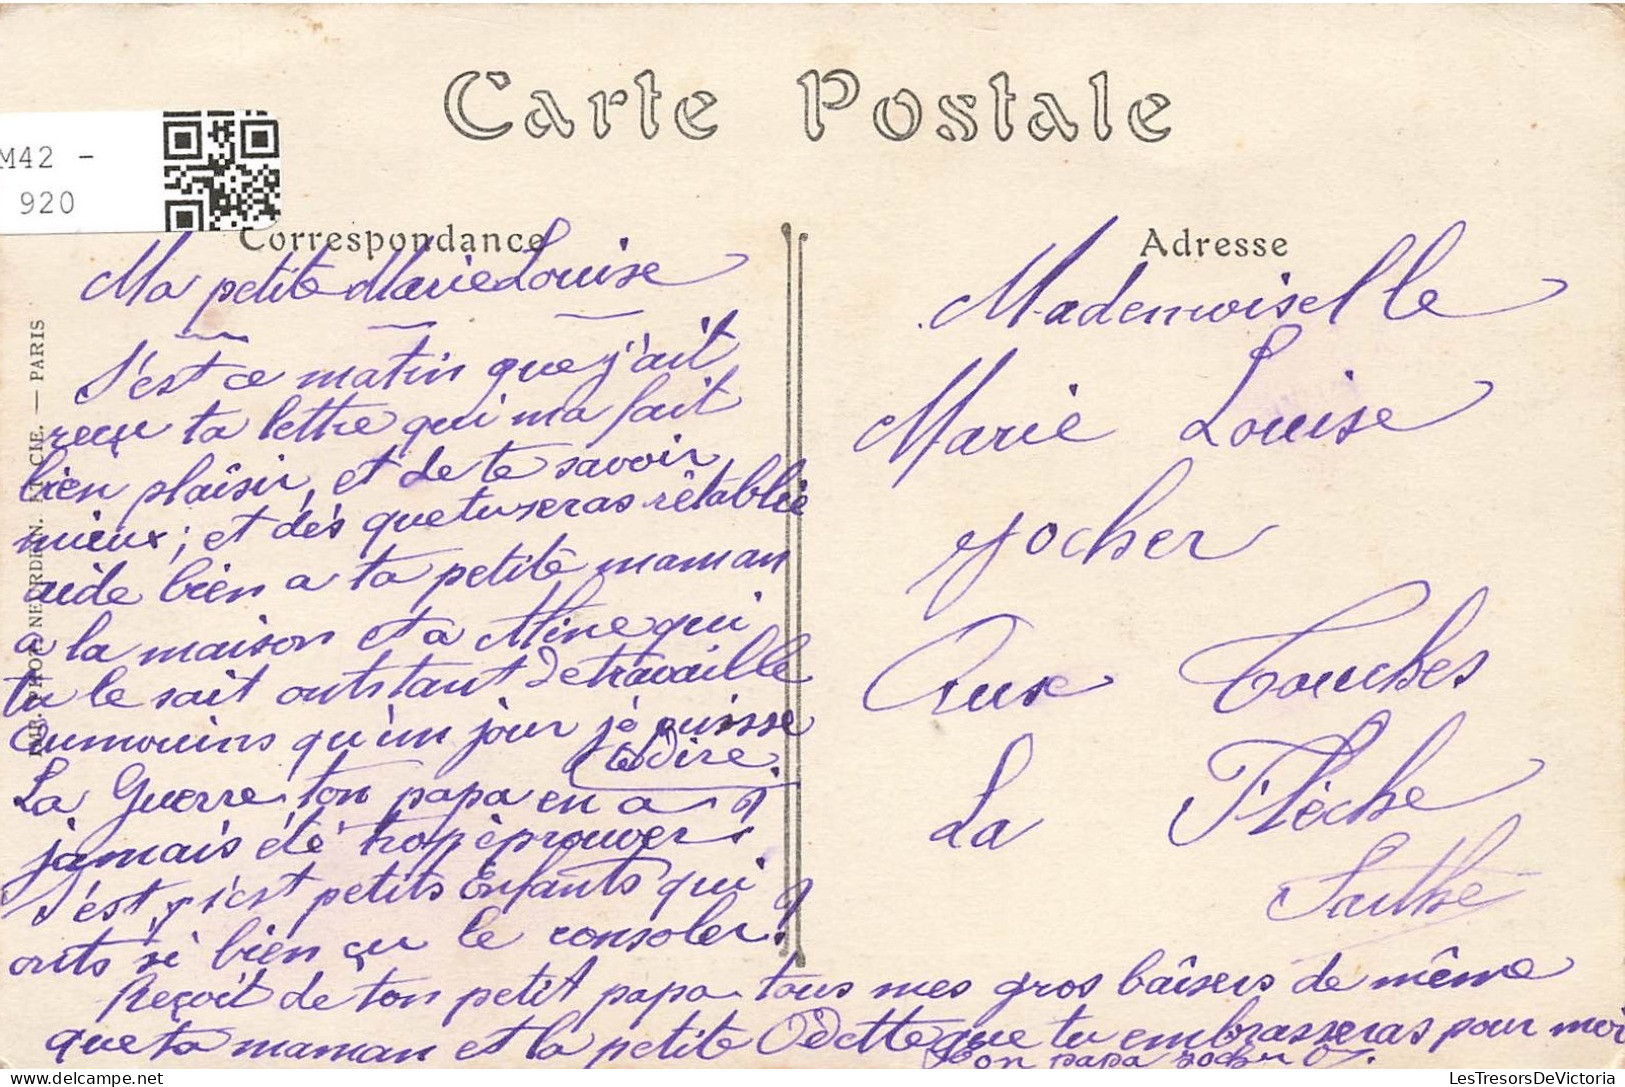 Carte Postale
M42 -
920
Correspondance
Adresse
IMP. PHOT. NEURDEIN. ET CIE. — PARIS
Ma petite Marie Louise
S'est ce matin que j'ait
reçu ta lettre qui ma fait
bien plaîsir, et de te savoir
mieux; et dès que tu seras rétablie
aide bien a ta petite maman
a la maison et a Aline qui
tu le sait onts tant de travaille
aumouins qu'un jour je puisse
te dire
La Guerre ton papa en a
jamais été trop éprouver
S'est petits Enfants qui
onts si bien çu le consoler.
Reçoit de ton petit papa tous mes gros baîsers de même
que ta maman et la petite Odette que tu embrasseras pour moi
Ton papa Jocher
Mademoiselle
Marie Louise
Jocher
Aux Touches
La Flèche
Sarthe
LesTresorsDeVictoria